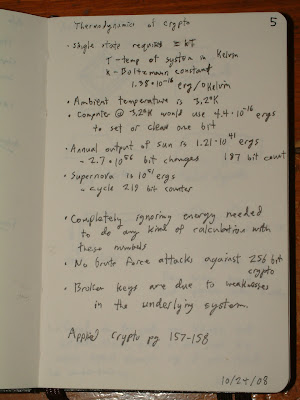 5
Thermodynamics of Crypto
• Single state requires ≥ kT
T - temp of system in Kelvin
k - Boltzmann constant
1.38·10⁻¹⁶ erg/°Kelvin
• Ambient temperature is 3.2°K
• Computer @ 3.2°K would use 4.4·10⁻¹⁶
to set or clear one bit
• Annual output of sun is 1.21·10⁴¹ ergs
- 2.7·10⁵⁶ bit changes 187 bit count
• Supernova is 10⁵¹ ergs
- cycle 219 bit counter
• Completely ignoring energy needed
to do any kind of calculation with
these numbers
• No brute force attacks against 256 bit
crypto
• Broken keys are due to weaknesses
in the underlying system.
Applied Crypto pg 157-158
10/24/08